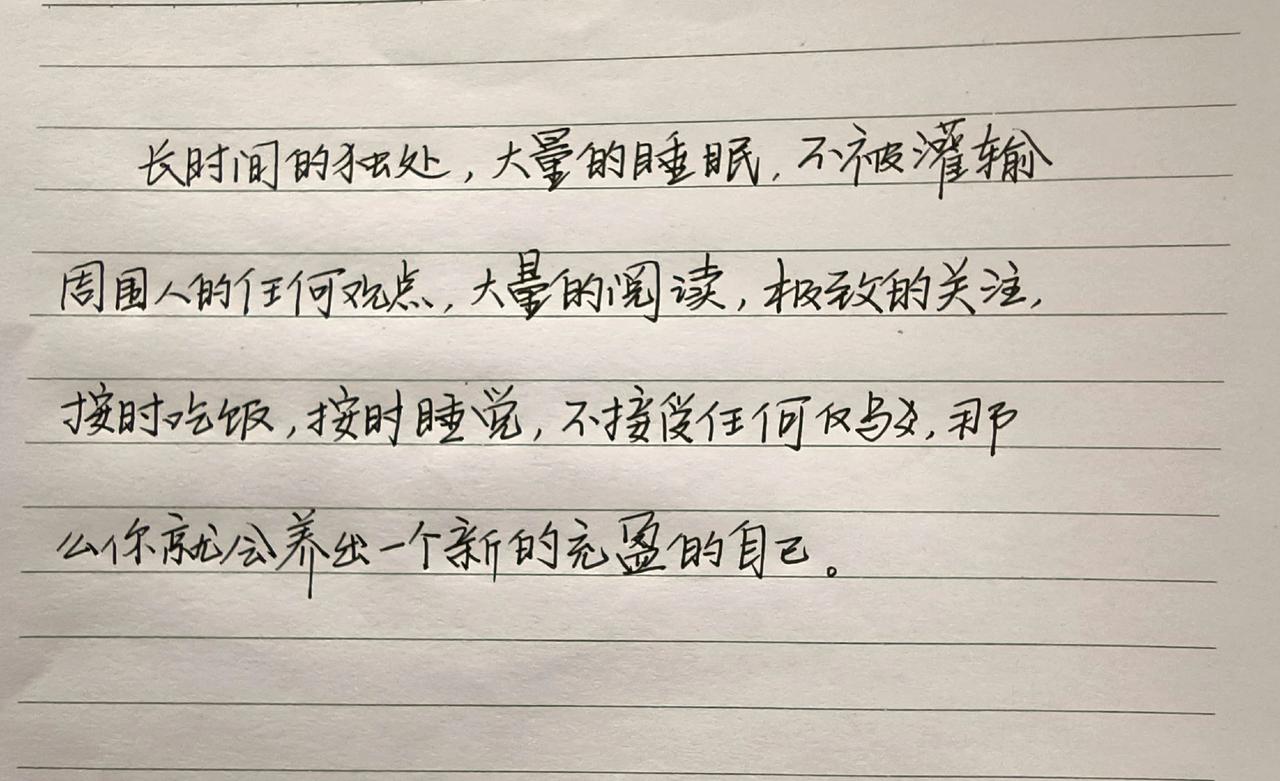 长时间的独处,大量的睡眠,不被灌输
周围人的任何观点,大量的阅读,极致的关注,
按时吃饭,按时睡觉,不接受任何,那
么你就会养出一个新的充盈的自己。